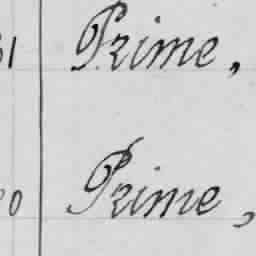 1 Prime,
0 Prime,